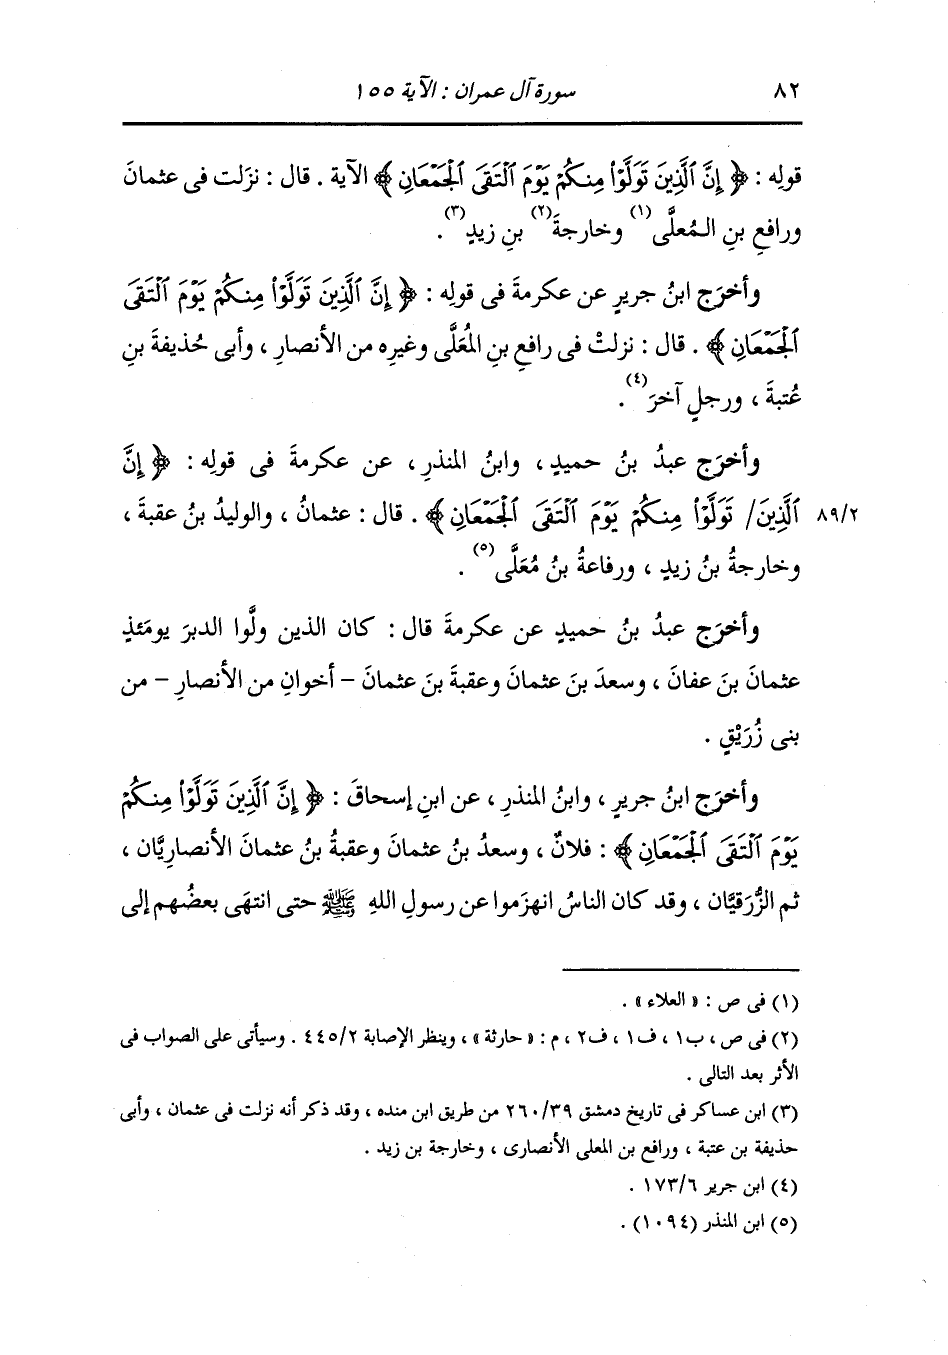 ٨٢ سورة آل عمران : الآية ١٥٥
قولِه : ﴿ إِنَّ ٱلَّذِينَ تَوَلَّوْا۟ مِنكُمْ يَوْمَ ٱلْتَقَى ٱلْجَمْعَانِ ﴾ الآية . قال : نزَلت فى عثمانَ
ورافعِ بنِ المُعلَّى(١) وخارجةَ(٢) بنِ زيدٍ(٣) .
وأخرَج ابنُ جريرٍ عن عكرمةَ فى قولِه : ﴿ إِنَّ ٱلَّذِينَ تَوَلَّوْا۟ مِنكُمْ يَوْمَ ٱلْتَقَى
ٱلْجَمْعَانِ ﴾ . قال : نزلتْ فى رافعِ بنِ المُعَلَّى وغيرِه من الأنصارِ ، وأبى حُذيفةَ بنِ
عُتبةَ ، ورجلٍ آخرَ(٤) .
وأخرَج عبدُ بنُ حميدٍ ، وابنُ المنذرِ ، عن عكرمةَ فى قولِه : ﴿ إِنَّ
٨٩/٢ ٱلَّذِينَ/ تَوَلَّوْا۟ مِنكُمْ يَوْمَ ٱلْتَقَى ٱلْجَمْعَانِ ﴾ . قال : عثمانُ ، والوليدُ بنُ عقبةَ ،
وخارجةُ بنُ زيدٍ ، ورفاعةُ بنُ مُعَلَّى(٥) .
وأخرَج عبدُ بنُ حميدٍ عن عكرمةَ قال : كان الذين ولَّوا الدبرَ يومَئذٍ
عثمانَ بنَ عفانَ ، وسعدَ بنَ عثمانَ وعقبةَ بنَ عثمانَ - أخوانِ من الأنصارِ - من
بنى زُرَيْقٍ .
وأخرَج ابنُ جريرٍ ، وابنُ المنذرِ ، عن ابنِ إسحاقَ : ﴿ إِنَّ ٱلَّذِينَ تَوَلَّوْا۟ مِنكُمْ
يَوْمَ ٱلْتَقَى ٱلْجَمْعَانِ ﴾ : فلانٌ ، وسعدُ بنُ عثمانَ وعقبةُ بنُ عثمانَ الأنصاريَّان ،
ثم الزُّرَقيَّان ، وقد كان الناسُ انهزَموا عن رسولِ اللهِ ﷺ حتى انتهَى بعضُهم إلى
(١) فى ص : « العلاء » .
(٢) فى ص ، ب١ ، ف١ ، ف٢ ، م : « حارثة » ، وينظر الإصابة ٤٤٥/٢ . وسيأتى على الصواب فى
الأثر بعد التالى .
(٣) ابن عساكر فى تاريخ دمشق ٢٦٠/٣٩ من طريق ابن منده ، وقد ذكر أنه نزلت فى عثمان ، وأبى
حذيفة بن عتبة ، ورافع بن المعلى الأنصارى ، وخارجة بن زيد .
(٤) ابن جرير ١٧٣/٦ .
(٥) ابن المنذر (١٠٩٤) .